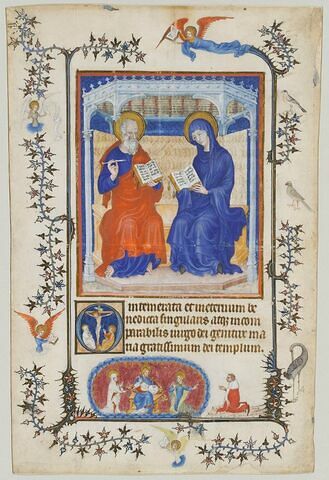 O intemerata et ineternum be
nedicta singularis atqз incom
parabilis uirgo dei genitrix ma
ria gratissimum dei templum.